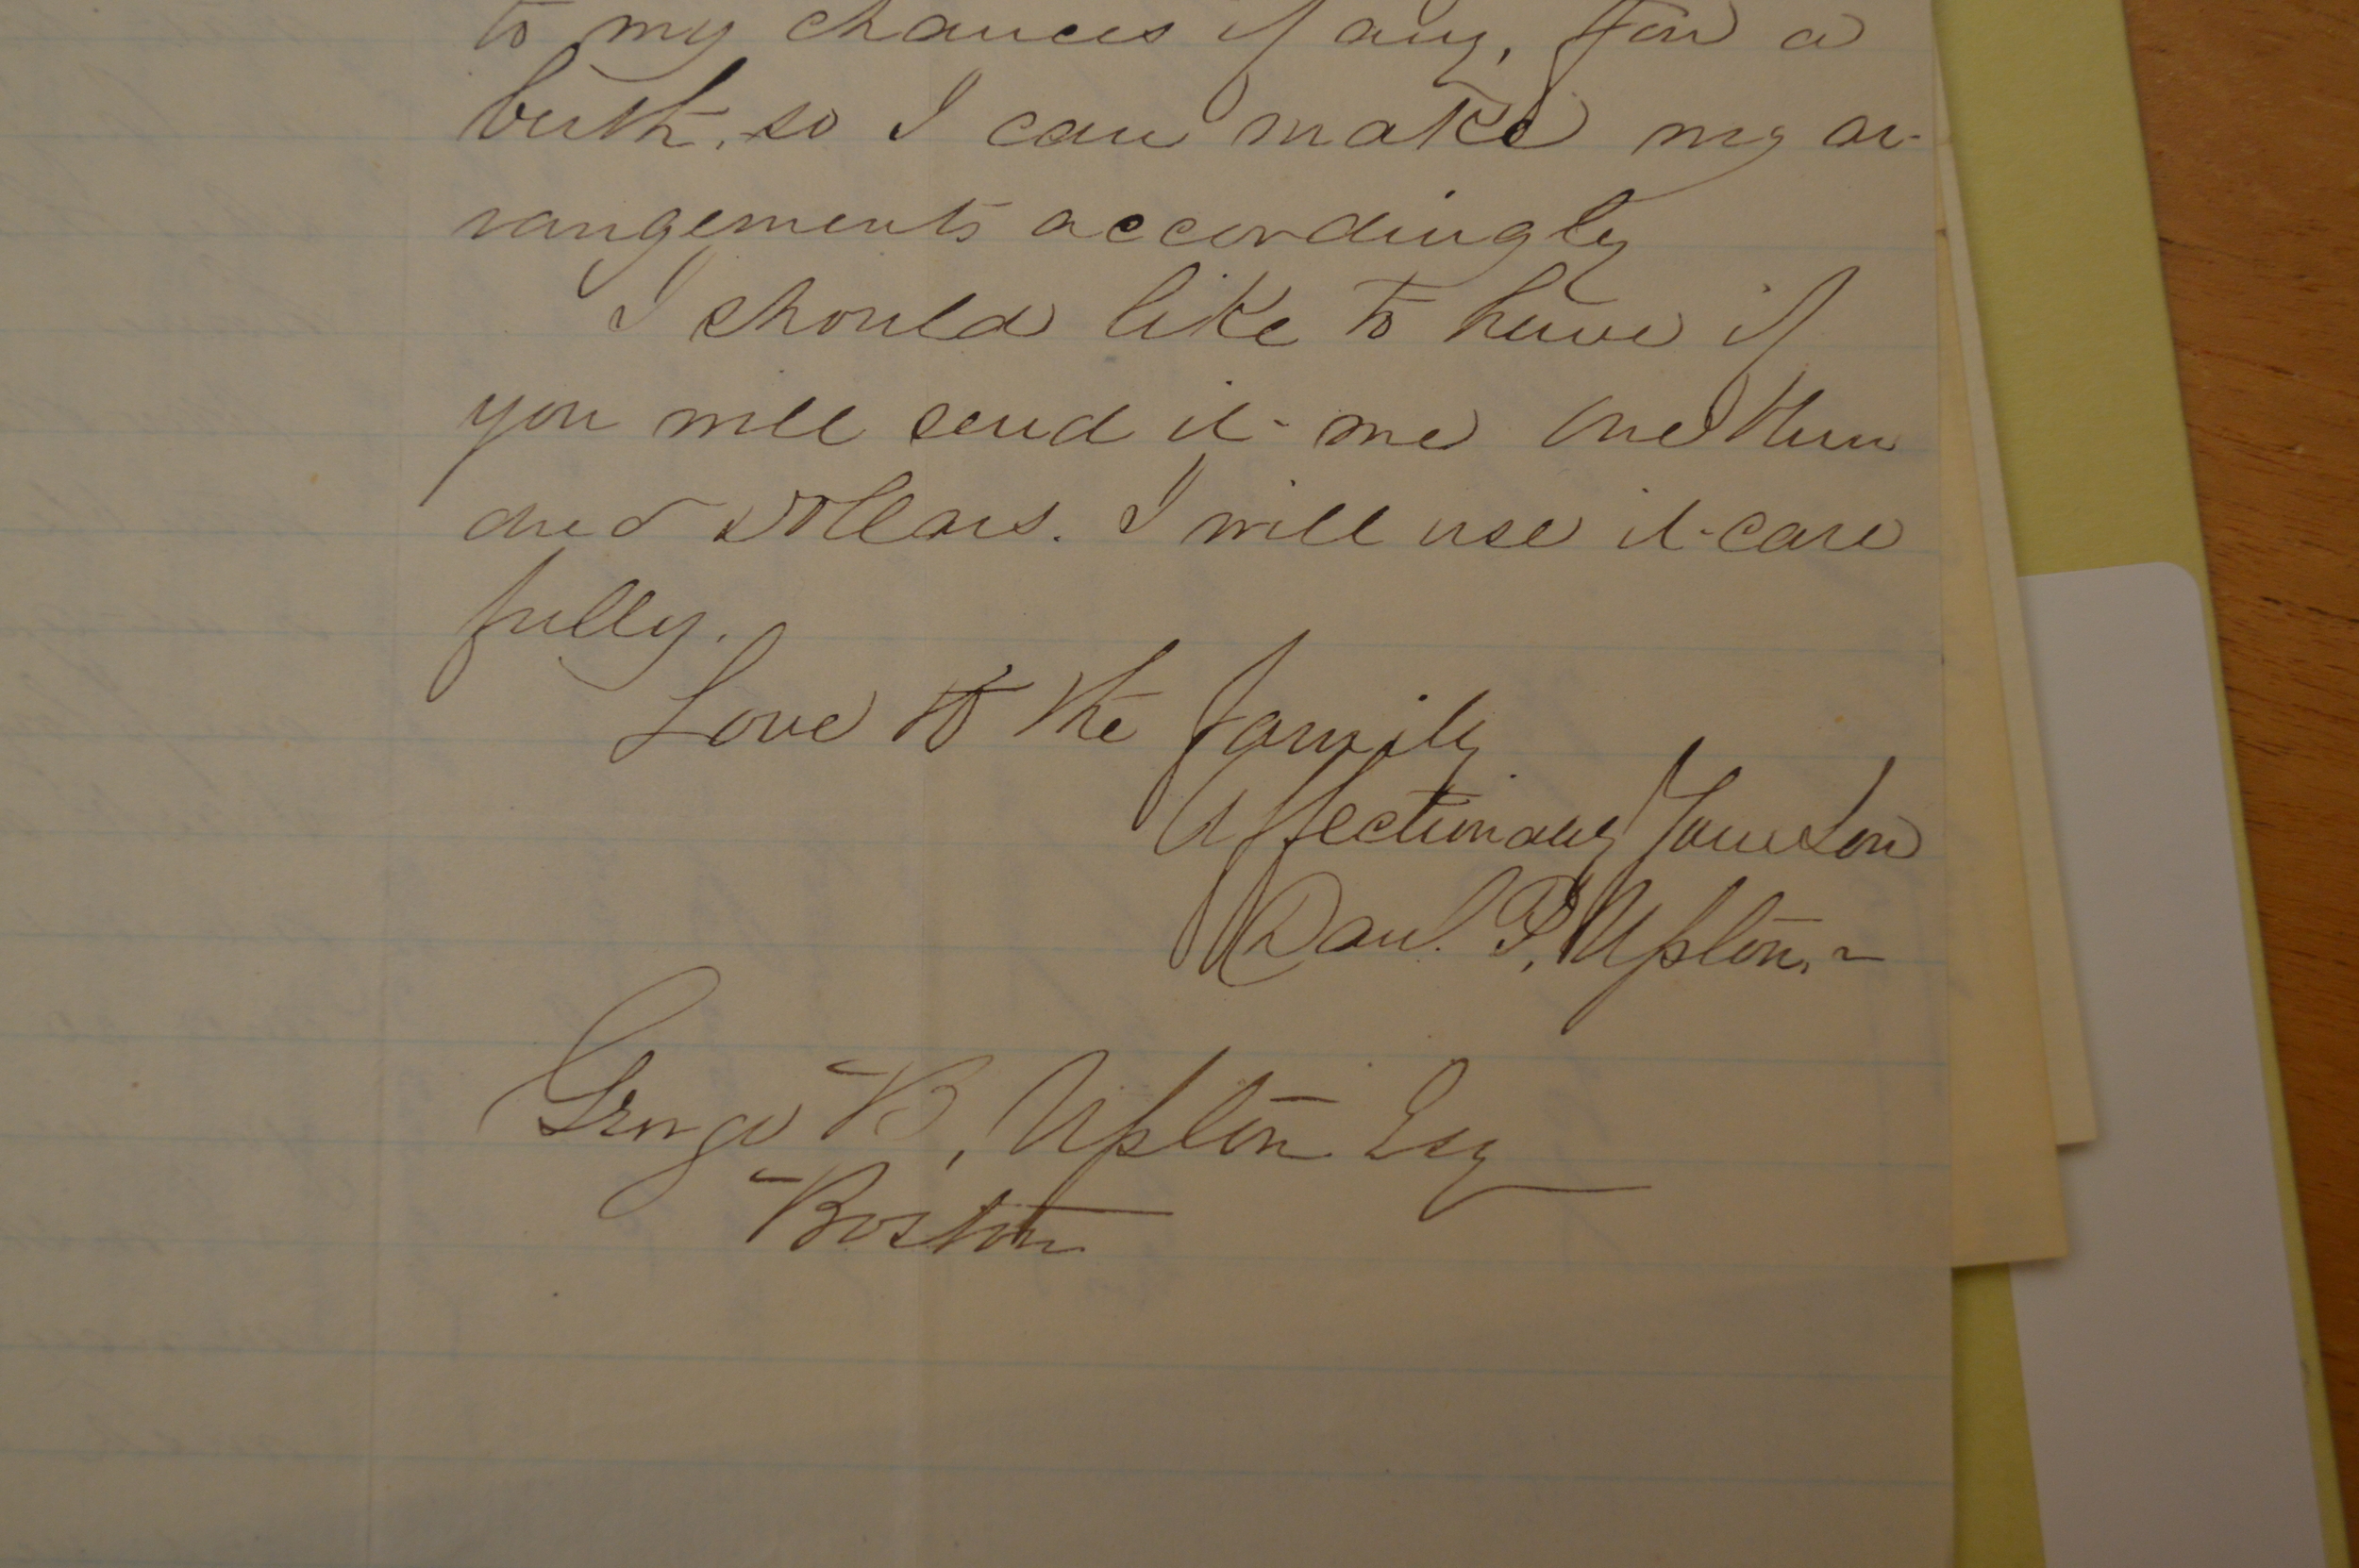 to my chances if any, for a
birth, so I can make my ar-
rangements accordingly
I should like to have if
you will send it me One Hun
dred Dollars. I will use it care
fully.
Love to the family
Affectionately Your Son
Danl. P. Upton
George B, Upton Esq
Boston